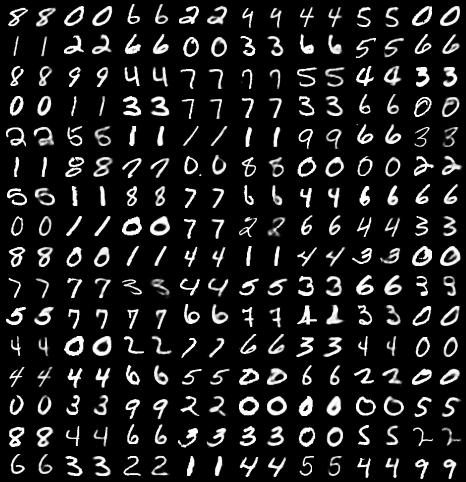 8 8 0 0 6 6 2 2 9 9 4 4 5 5 0 0
1 1 2 2 6 6 0 0 3 3 6 6 5 5 6 6
8 8 9 9 4 4 7 7 7 7 5 5 4 4 3 3
0 0 1 1 3 3 7 7 7 7 3 3 6 6 0 0
2 2 5 5 1 1 1 1 1 1 9 9 6 6 3 3
1 1 8 8 7 7 0 0 8 8 0 0 0 0 2 2
5 5 1 1 8 8 7 7 6 6 4 4 6 6 6 6
0 0 1 1 0 0 7 7 2 2 6 6 4 4 3 3
8 8 0 0 1 1 4 4 1 1 4 4 3 3 0 0
7 7 7 7 3 3 4 4 5 5 3 3 6 6 3 9
5 5 7 7 7 7 6 6 7 7 1 1 3 3 0 0
4 4 0 0 2 2 7 7 6 6 3 3 4 4 0 0
4 4 4 4 6 6 5 5 0 0 6 6 2 2 0 0
0 0 3 3 9 9 2 2 0 0 0 0 0 0 5 5
8 8 4 4 6 6 3 3 3 3 0 0 5 5 2 2
6 6 3 3 2 2 1 1 4 4 5 5 4 4 9 9